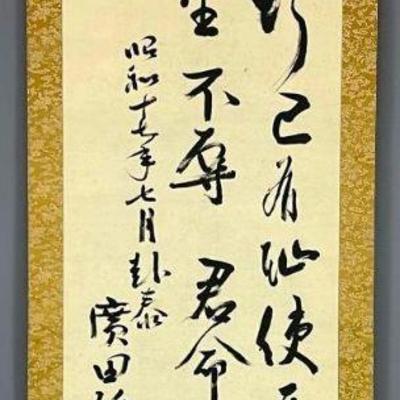 行己有恥使
不辱君命
昭和十七年七月赴泰
廣田